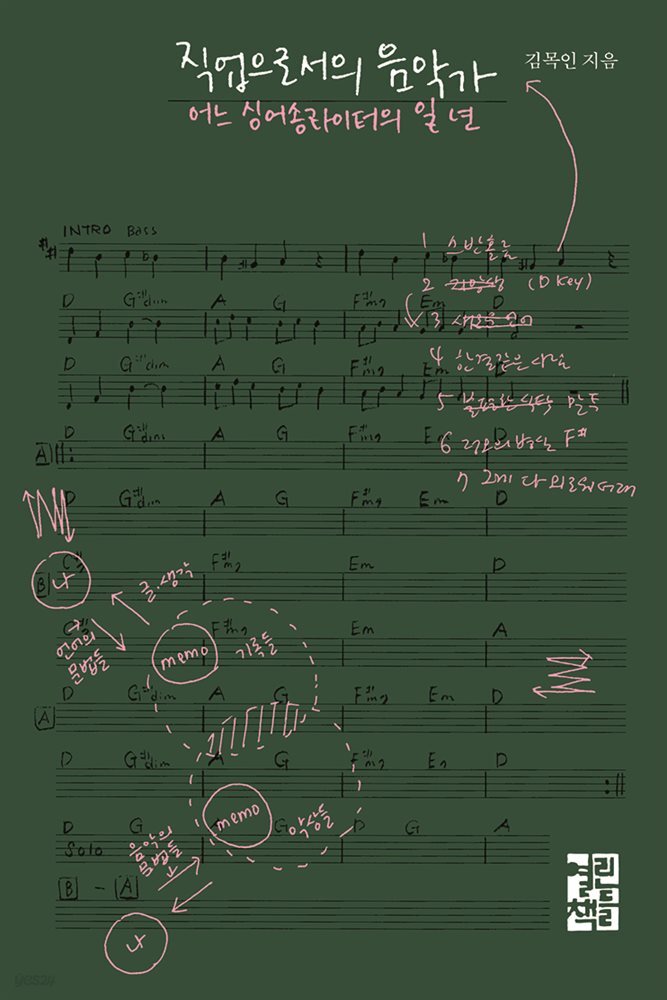 직업으로서의 음악가
김목인 지음
어느 싱어송라이터의 일 년
INTRO Bass
1 스반홀름
2 (D Key)
D G#dim A G F#m7 Em D
3
D G#dim A G F#m7 Em D
4 한결같은 사람
5 불편한 식탁 말투
A D G#dim A G F#m7 Em D
6 F#
7 그게 다 외로워서래
D G#dim A G F#m7 Em D
B 나
F#m7 Em D
글·생각
F#m7 Em A
언어의 문법들
memo 기록들
A D G#dim A G F#m7 Em D
D G#dim A G F#m7 Em D
memo 악상들
D G A G D G A
Solo
음악의 문법들
B - A
나
열린책들
yes24